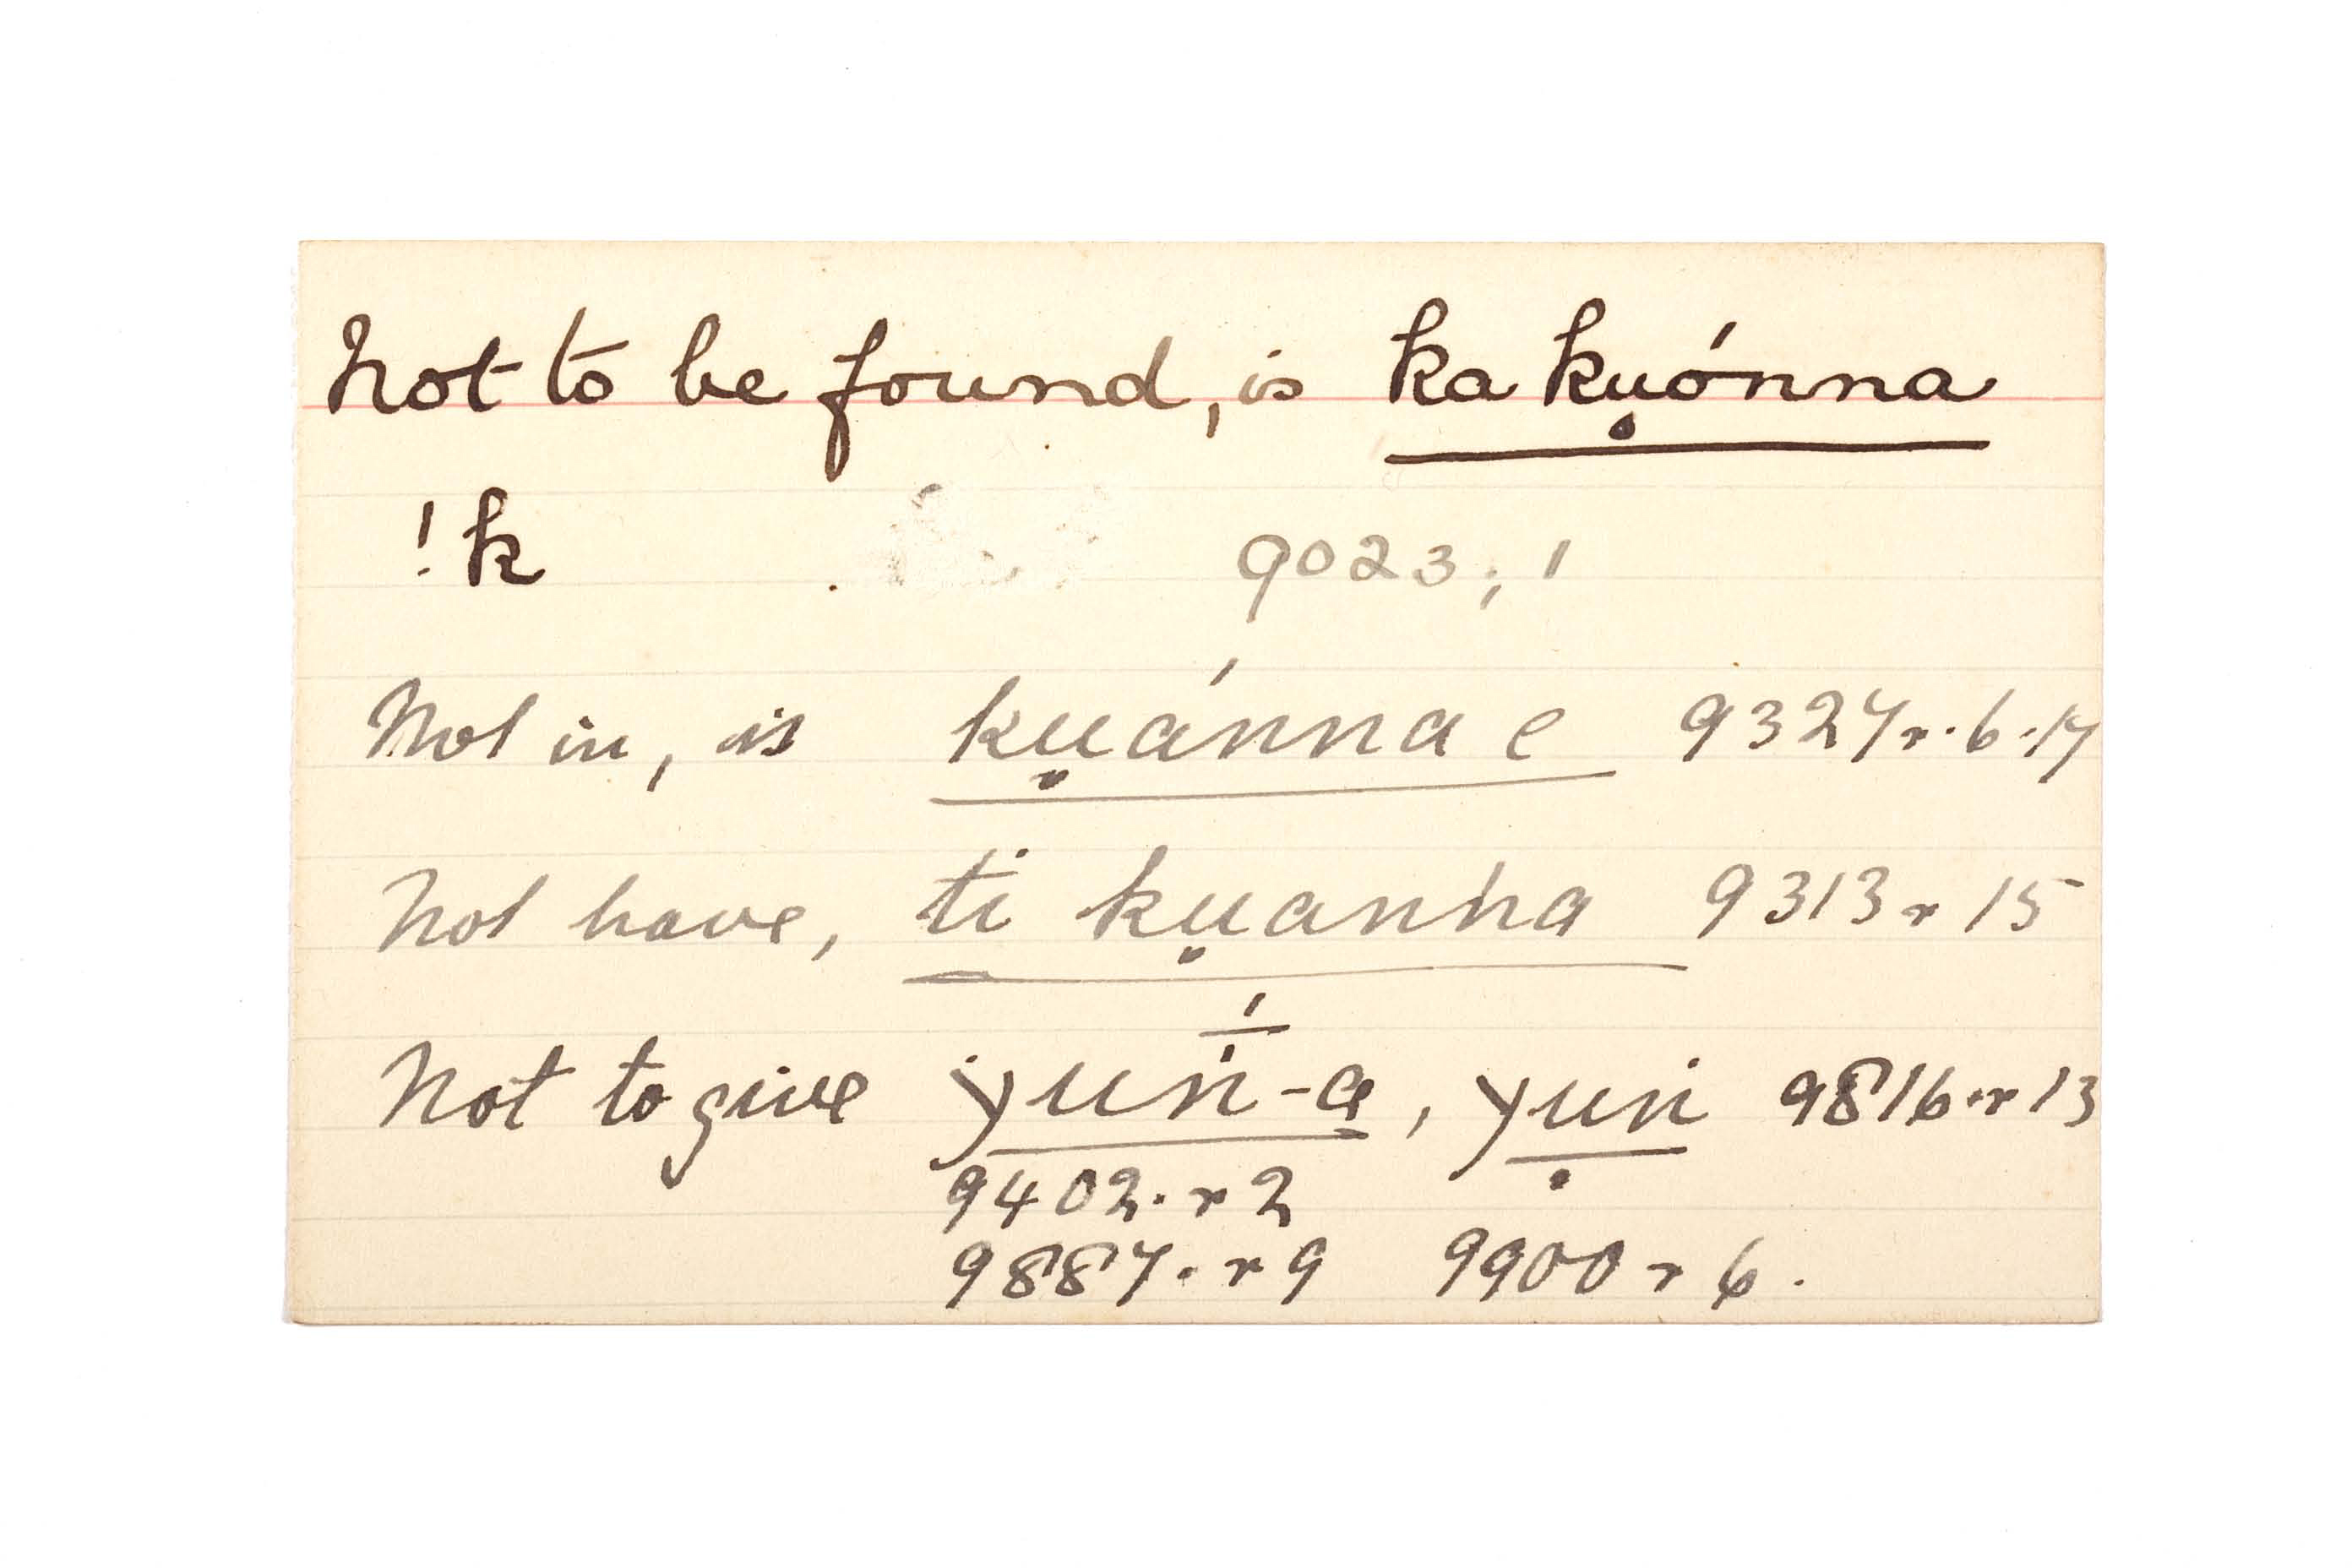 Not to be found, is ka kụónna
!k 9023; 1
Not in, is kụánna e 9327 r. 6. 17
Not have, ti kụanṅa 9313 r 15
Not to give yuṅ-a, yuṅ 9816. r 13
9402. r 2
9887. r 9 9900 r 6.